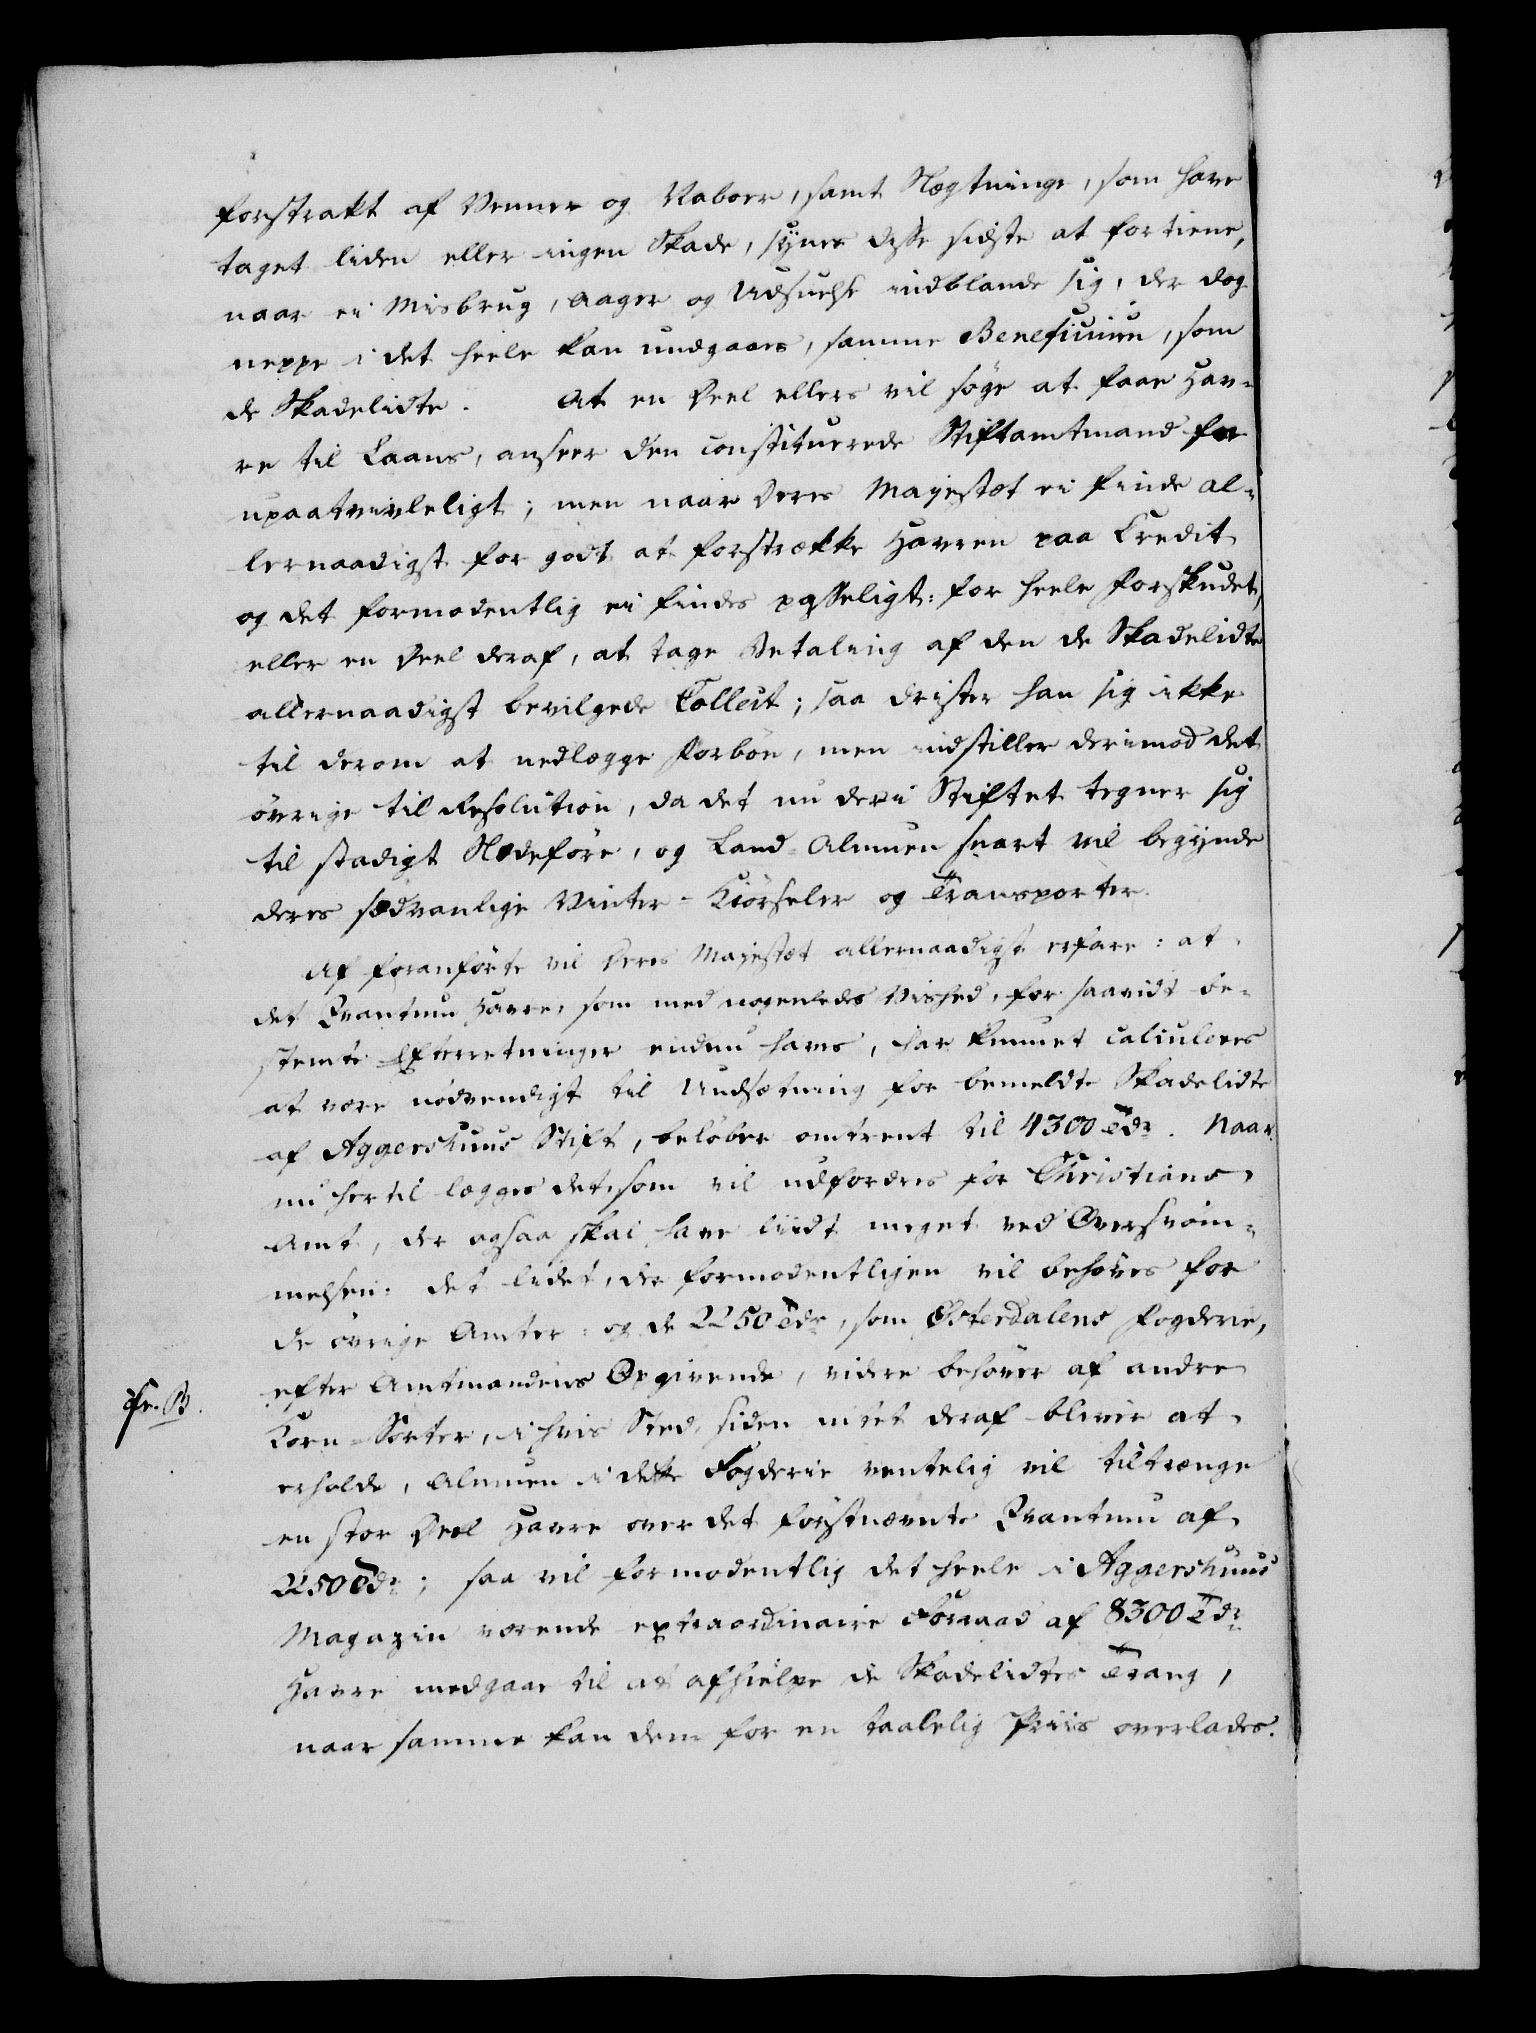 forstrakt af Venner og Naboer, samt Slægtninge, som have
taget liden eller ingen Skade, synes disse sidste at fortiene,
naar ei Misbrug, Aager og Udsuelse indblande sig, der dog
neppe i det heele kan undgaaes, samme Beneficium, som
de Skadelidte. At en Deel ellers vil søge at faae Hav-
re til Laans, anseer den constituerede Stiftamtmand for
upaatvivleligt; men naar Deres Majestæt ei finde al-
lernaadigst for godt at forstrække Havren paa Credit
og det formodentlig ei findes passeligt: for heele Forskudet,
eller en Deel deraf, at tage Betaling af den de Skadelidte
allernaadigst bevilgede Collect; saa drister han sig ikke
til derom at nedlægge Forbøn, men indstiller derimod det
øvrige til Resolution, da det nu der i Stiftet tegner sig
til stadigt Slædeføre, og Land-Almuen snart vil begynde
deres sædvanlige Vinter-Kiørseler og Transporter.
Af foranførte vil Deres Majestæt allernaadigst erfare: at
det Qvantum Havre, som med nogenledes Vished, for saavidt be-
stemte Efterretninger endnu haves, har kunnet calculeres
at være nødvendigt til Undsætning for bemeldte Skadelidte
af Aggershuus Stift, beløber omtrent til 4300 Tdr. Naar
nu hertil lægges det, som vil udfordres for Christians
Amt, der ogsaa skal have liidt meget ved Oversvøm-
melsen: det lidet, der formodentligen vil behøves for
de øvrige Amter: og de 2250 Tdr, som Østerdalens Fogderie,
efter Amtmandens Opgivende, videre behøver af andre
Fr. B.
Korn-Sorter, i hvis Sted, siden intet deraf bliver at
erholde, Almuen i dette Fogderie ventelig vil tiltrænge
en stor Deel Havre over det førstnævnte Qvantum af
2250 Tdr; saa vil formodentlig det heele i Aggershuus
Magazin værende extraordinaire Forraad af 8300 Tdr
Havre medgaae til at afhielpe de Skadelidtes Trang,
naar samme kan dem for en taalelig Priis overlades.